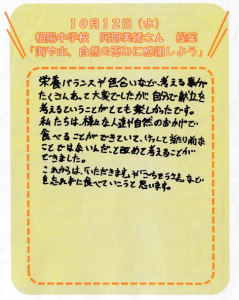 10月12日（水）
相陽中学校　阿部美緒さん　提案
「海や山、自然の恵みに感謝しよう」
栄養バランスや色合いなど、考える事が
たくさんあって大変でしたが自分で献立を
考えるということがとても楽しかったです。
私たちは、様々な人達や自然のおかげで
食べることができていて、けっして当たり前な
ことではないんだと改めて考えることが
できました。
これからは、「いただきます」や「ごちそうさま」など
を忘れずに食べていこうと思います。